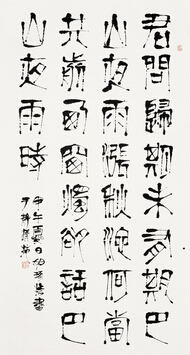 君問歸期未有期巴
山夜雨漲秋池何當
共剪西窗燭卻話巴
山夜雨時
午夏日